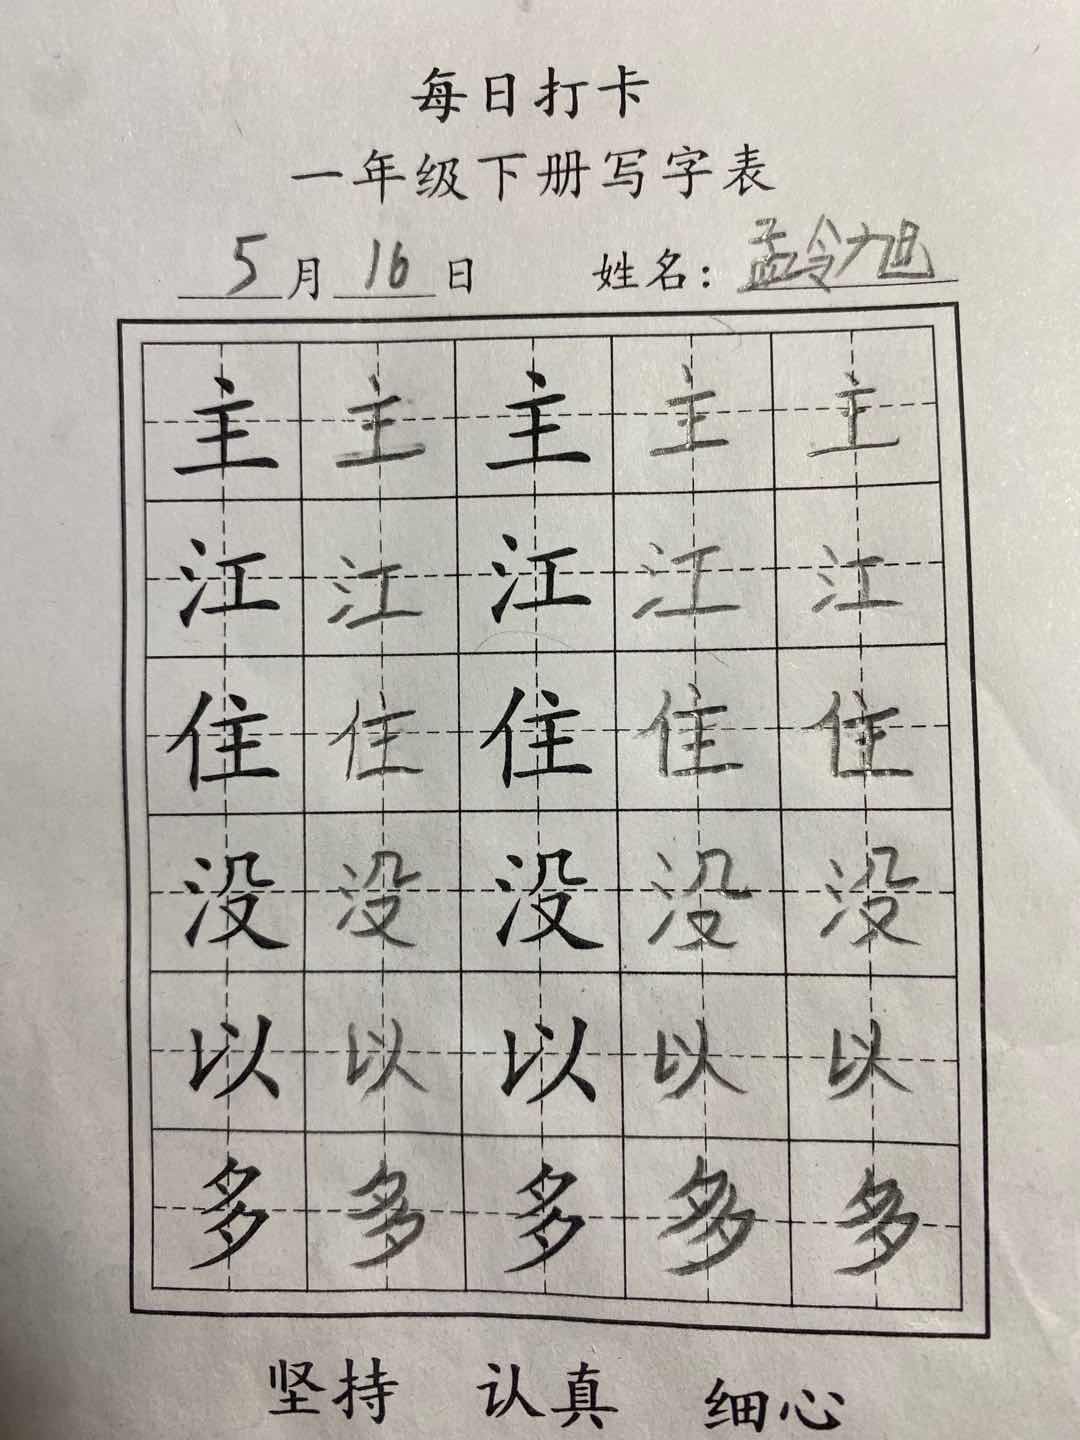 每日打卡
一年级下册写字表
5月16日 姓名：孟令旭
主主主主主
江江江江江
住住住住住
没没没没没
以以以以以
多多多多多
坚持 认真 细心